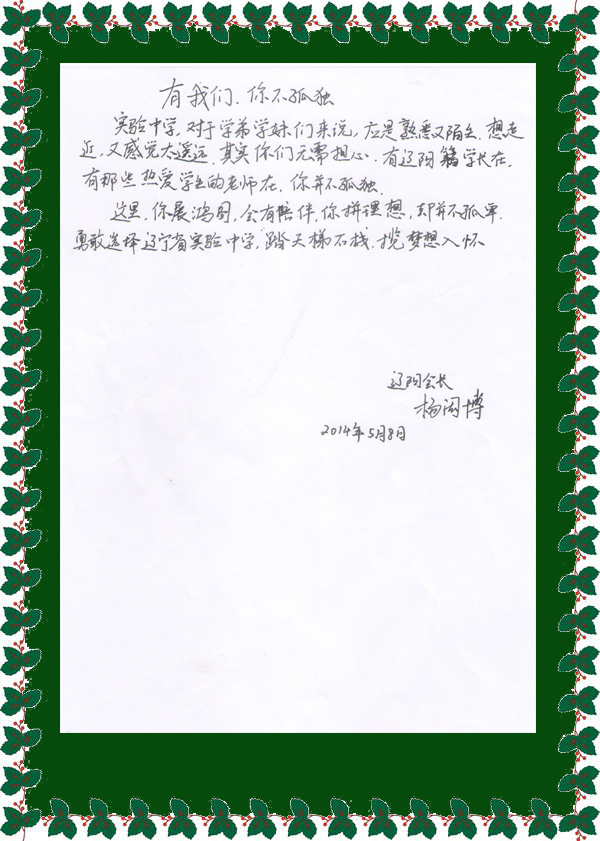 有我们.你不孤独
实验中学,对于学弟学妹们来说,应是熟悉又陌生,想走
近,又感觉太遥远,其实你们无需担心,有辽阳籍学长在,
有那些热爱学生的老师在,你并不孤独.
这里,你展鸿图,会有陪伴,你拼理想,却并不孤单.
勇敢选择辽宁省实验中学,踏天梯石栈,揽梦想入怀
辽阳会长
杨闵博
2014年5月8日